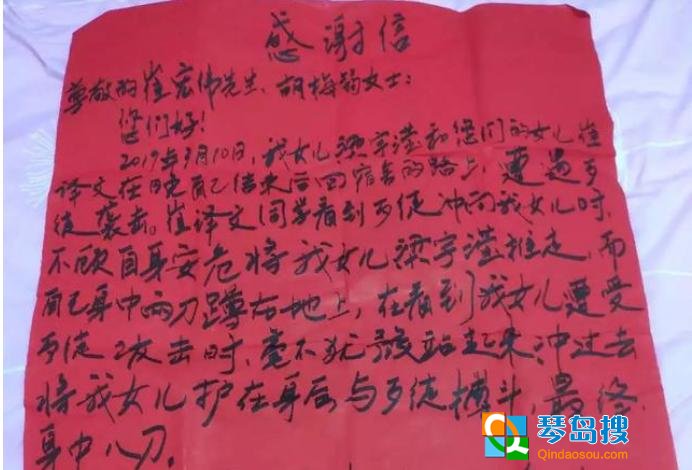 感谢信
尊敬的崔宏伟先生、胡梅菊女士:
您们好!
2019年3月10日,我女儿梁宇滢和您们的女儿崔
译文在晚自己结束后回宿舍的路上,遭遇歹
徒袭击。崔译文同学看到歹徒冲向我女儿时,
不顾自身安危将我女儿梁宇滢推走,而
自己身中两刀蹲在地上,在看到我女儿遭受
歹徒攻击时,毫不犹豫站起来冲过去
将我女儿护在身后与歹徒搏斗,最终
身中八刀。
琴岛搜
Qindaosou.com